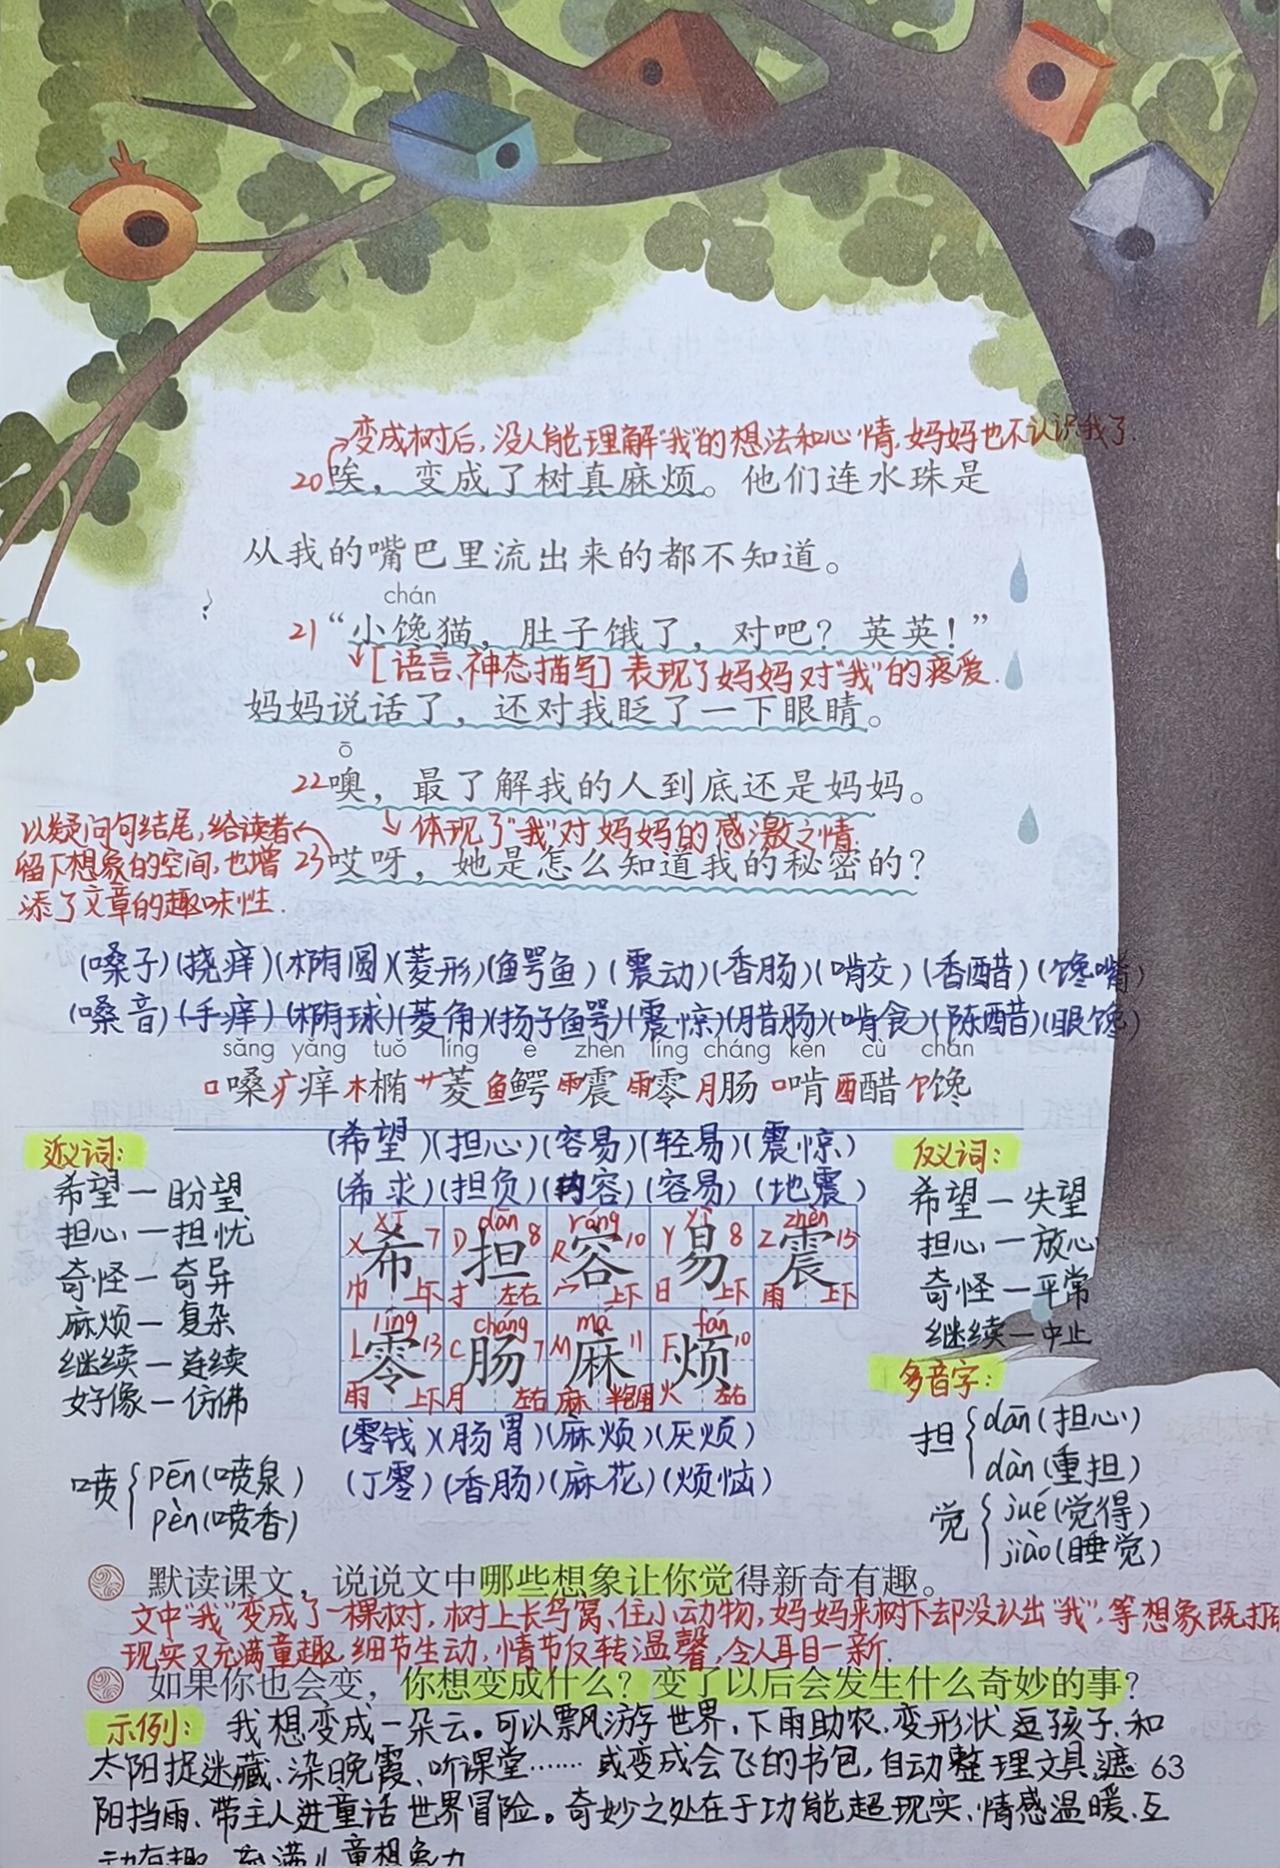 变成树后，没人能理解“我”的想法和心情，妈妈也不认识我了.
20唉，变成了树真麻烦。他们连水珠是
从我的嘴巴里流出来的都不知道。
chán
21“小馋猫，肚子饿了，对吧？英英！”
[语言、神态描写]表现了妈妈对“我”的疼爱.
妈妈说话了，还对我眨了一下眼睛。
ō
22噢，最了解我的人到底还是妈妈。
体现了“我”对妈妈的感激之情.
以疑问句结尾，给读者
留下想象的空间，也增
添了文章的趣味性.
23哎呀，她是怎么知道我的秘密的？
(嗓子)(挠痒)(椭圆)(菱形)(鳄鱼)(震动)(香肠)(啃咬)(香醋)(馋嘴)
(嗓音)(手痒)(椭球)(菱角)(扬子鳄)(震惊)(腊肠)(啃食)(陈醋)(眼馋)
sǎng yǎng tuǒ líng è zhèn líng cháng kěn cù chán
口嗓 疒痒 木椭 艹菱 鱼鳄 雨震 雨零 月肠 口啃 酉醋 饣馋
近义词：
希望—盼望
担心—担忧
奇怪—奇异
麻烦—复杂
继续—连续
好像—仿佛
喷 pēn(喷泉)
pèn(喷香)
(希望)(担心)(容易)(轻易)(震惊)
(希求)(担负)(内容)(容易)(地震)
xī dān róng yì zhèn
X 希 7 D 担 8 R 容 10 Y 易 8 Z 震 15
巾 上下 扌 左右 宀 上下 日 上下 雨 上下
líng cháng má fán
L 零 13 C 肠 7 M 麻 11 F 烦 10
雨 上下 月 左右 麻 半包围 火 左右
(零钱)(肠胃)(麻烦)(厌烦)
(丁零)(香肠)(麻花)(烦恼)
反义词：
希望—失望
担心—放心
奇怪—平常
继续—中止
多音字：
担 dān(担心)
dàn(重担)
觉 jué(觉得)
jiào(睡觉)
默读课文，说说文中哪些想象让你觉得新奇有趣。
文中“我”变成了一棵树，树上长鸟窝、住小动物，妈妈来树下却没认出“我”，等想象既打破
现实又充满童趣，细节生动，情节反转温馨，令人耳目一新.
如果你也会变，你想变成什么？变了以后会发生什么奇妙的事？
示例： 我想变成一朵云。可以飘游世界，下雨助农、变形状逗孩子、和
太阳捉迷藏、染晚霞、听课堂……或变成会飞的书包，自动整理文具、遮
63
阳挡雨、带主人进童话世界冒险。奇妙之处在于功能超现实、情感温暖、互
动有趣，充满儿童想象力